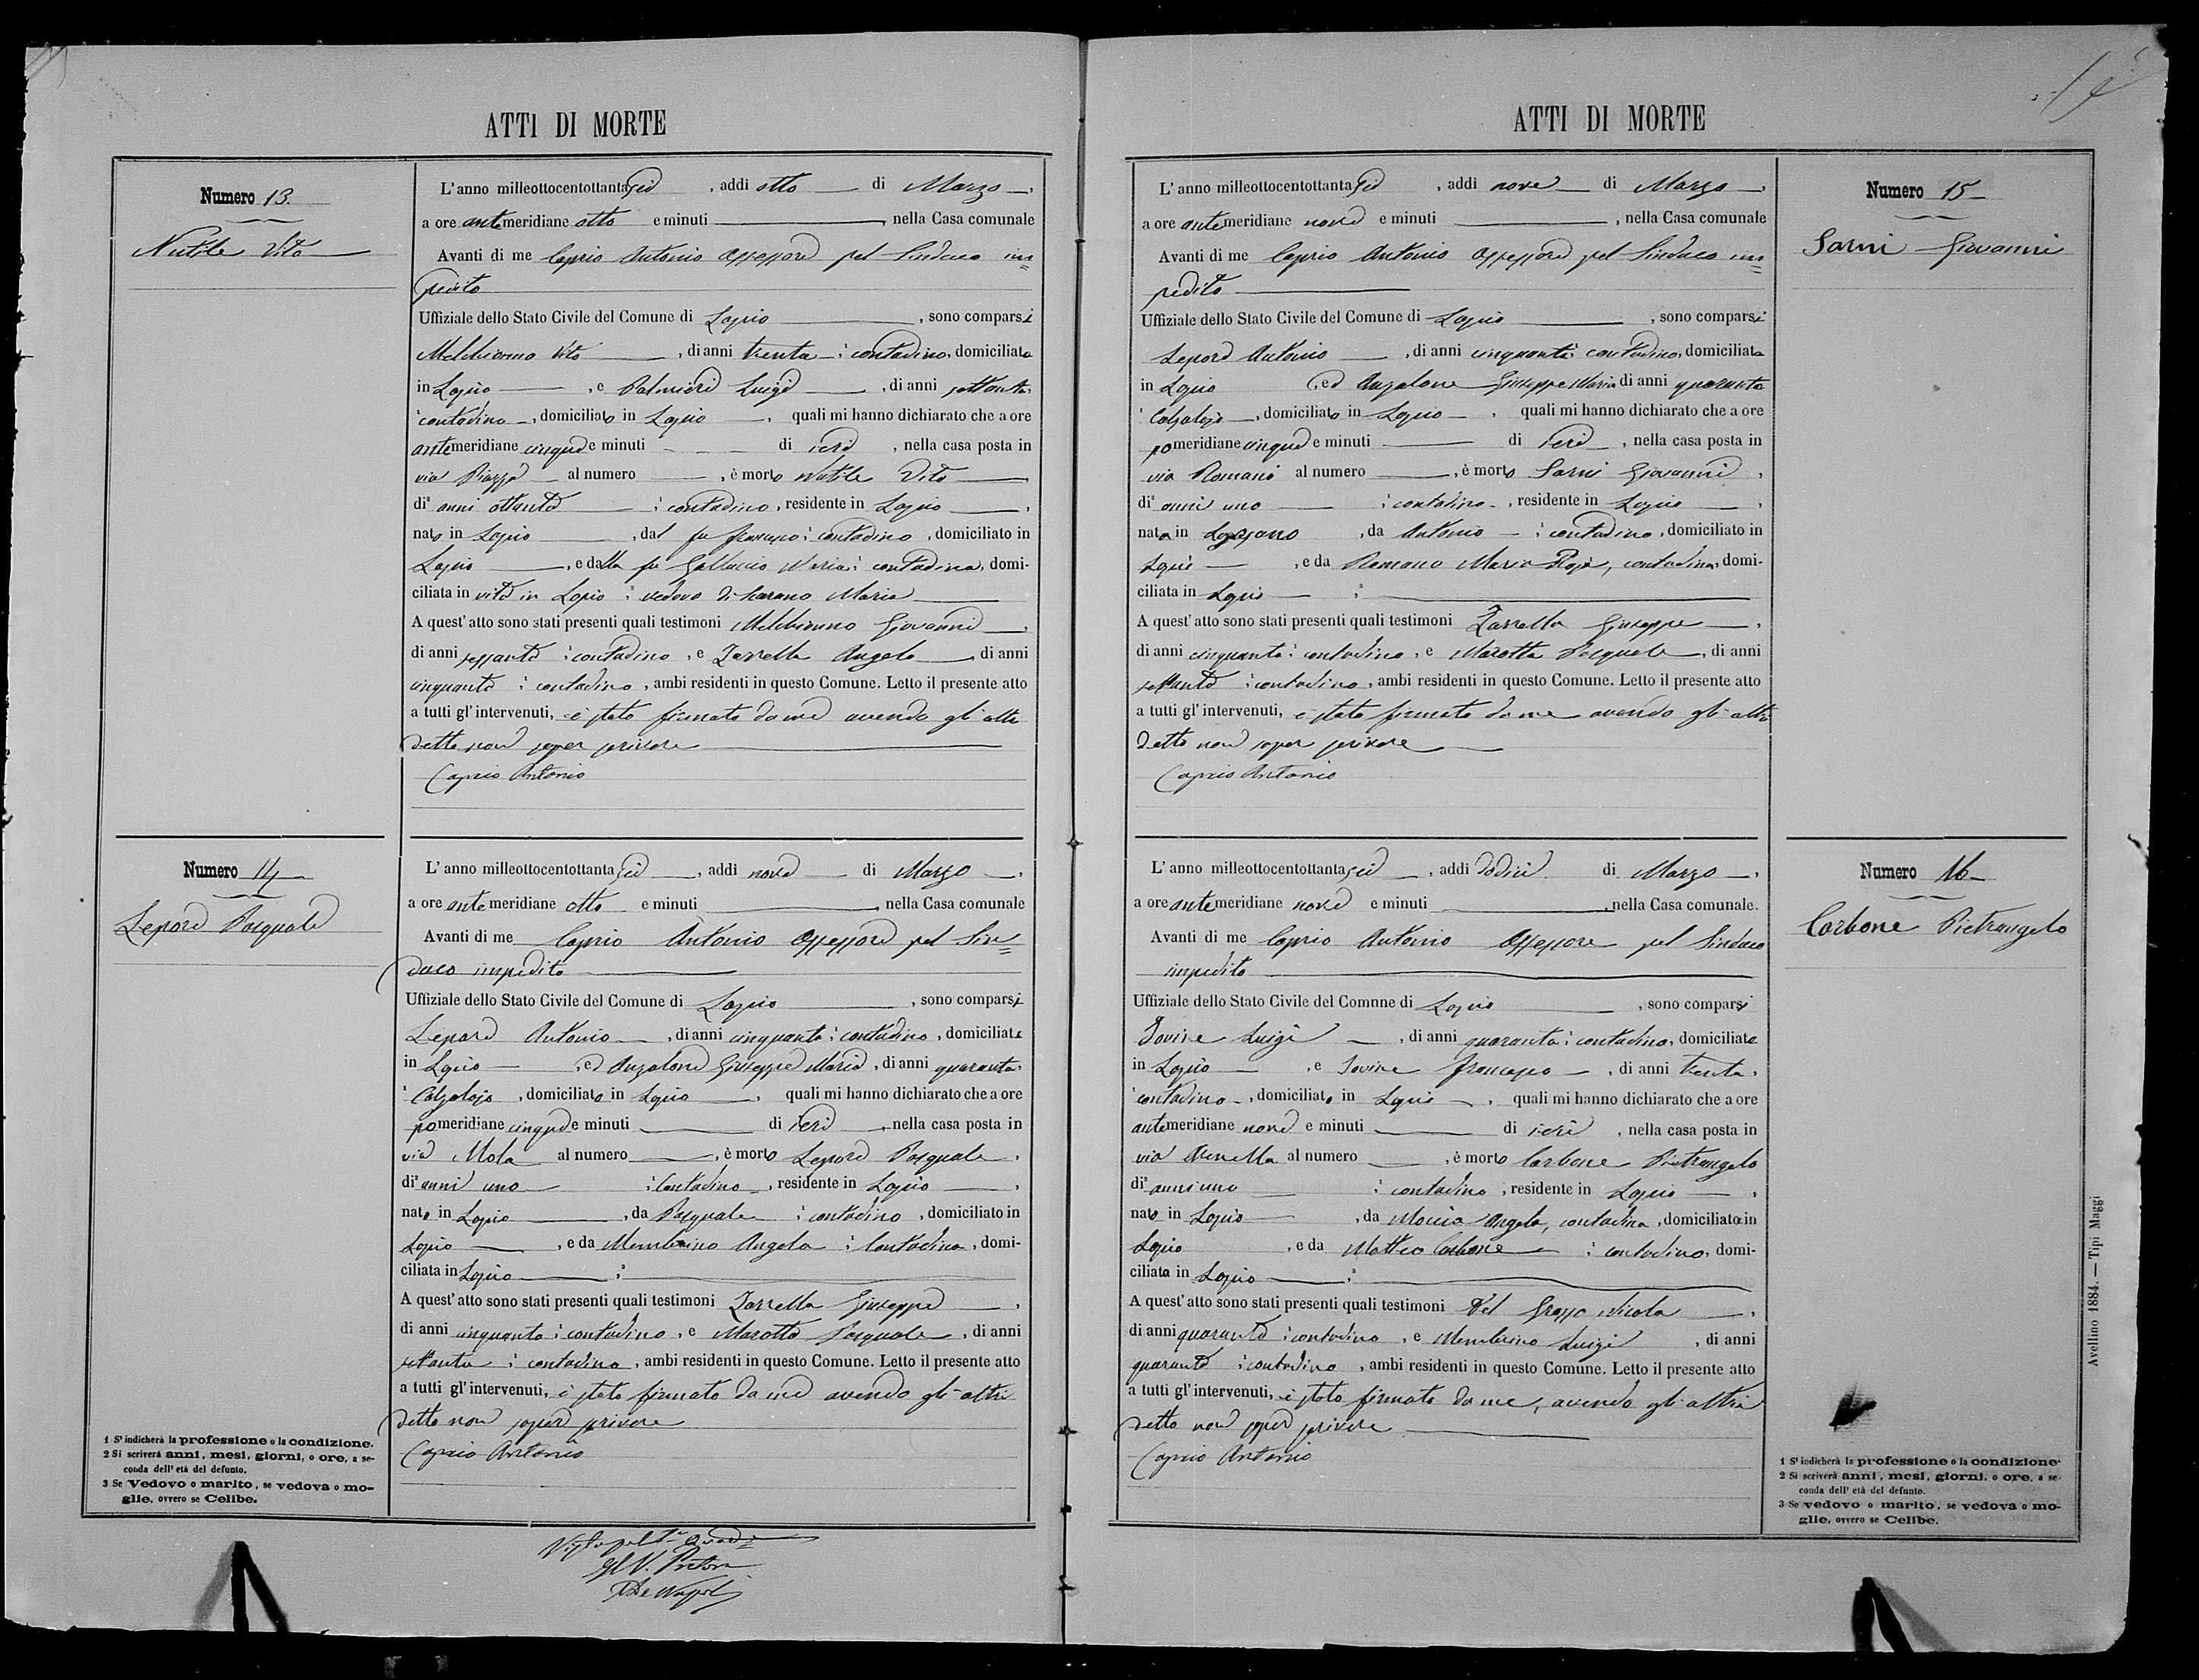 ATTI DI MORTE
Numero 13.
Nutile Vito
L'anno milleottocentottantasei, addi otto di Marzo,
a ore antemeridiane otto e minuti, nella Casa comunale
Avanti di me Caprio Antonio Assessore pel Sindaco im=
pedito
Uffiziale dello Stato Civile del Comune di Lapio, sono comparsi
Melchionno Vito, di anni trenta; contadino, domiciliato
in Lapio, e Palmieri Luigi, di anni settanta
contadino, domiciliato in Lapio, quali mi hanno dichiarato che a ore
antemeridiane cinque e minuti di ieri, nella casa posta in
via Piazza al numero, è morto Nutile Vito,
di anni ottanta; contadino, residente in Lapio,
nato in Lapio, dal fu Francesco; contadino, domiciliato in
Lapio, e dalla fu Galluccio Maria; contadina, domi-
ciliata in vita in Lapio; vedovo di Maria
A quest'atto sono stati presenti quali testimoni Melchionno Giovanni,
di anni sessanta; contadino, e Zarrella Angelo, di anni
cinquanta; contadino, ambi residenti in questo Comune. Letto il presente atto
a tutti gl'intervenuti, è stato firmato da me avendo gli altri
detto non saper scrivere
Caprio Antonio
Numero 14
Lepore Pasquale
L'anno milleottocentottantasei, addi nove di Marzo,
a ore antemeridiane otto e minuti, nella Casa comunale
Avanti di me Caprio Antonio Assessore pel Sin=
daco impedito
Uffiziale dello Stato Civile del Comune di Lapio, sono comparsi
Lepore Antonio, di anni cinquanta; contadino, domiciliato
in Lapio, ed Anzalone Giuseppe Maria, di anni quaranta
Calzolajo, domiciliato in Lapio, quali mi hanno dichiarato che a ore
pomeridiane cinque e minuti di ieri, nella casa posta in
via Mola al numero, è morto Lepore Pasquale,
di anni uno; Contadino, residente in Lapio,
nato in Lapio, da Pasquale; contadino, domiciliato in
Lapio, e da Membrino Angela; Contadina, domi-
ciliata in Lapio;
A quest'atto sono stati presenti quali testimoni Zarrella Giuseppe,
di anni cinquanta; contadino, e Marotta Pasquale, di anni
settanta; contadino, ambi residenti in questo Comune. Letto il presente atto
a tutti gl'intervenuti, è stato firmato da me avendo gli altri
detto non saper scrivere
Caprio Antonio
1 S'indicherà la professione o la condizione.
2 Si scriverà anni, mesi, giorni, o ore, a se-
conda dell'età del defunto.
3 Se Vedovo o marito, se vedova o mo-
glie, ovvero se Celibe.
Il V. Pretore
ATTI DI MORTE
Numero 15
Sarni Giovanni
L'anno milleottocentottantasei, addi nove di Marzo,
a ore antemeridiane nove e minuti, nella Casa comunale
Avanti di me Caprio Antonio Assessore pel Sindaco im=
pedito
Uffiziale dello Stato Civile del Comune di Lapio, sono comparsi
Lepore Antonio, di anni cinquanta; contadino, domiciliato
in Lapio, ed Anzalone Giuseppe Maria di anni quaranta
Calzolajo, domiciliato in Lapio, quali mi hanno dichiarato che a ore
pomeridiane cinque e minuti di ieri, nella casa posta in
via Romano al numero, è morto Sarni Giovanni,
di anni uno; contadino, residente in Lapio,
nato in, da Antonio; contadino, domiciliato in
Lapio, e da Romano Maria Rosa, contadina, domi-
ciliata in Lapio;
A quest'atto sono stati presenti quali testimoni Zarrella Giuseppe,
di anni cinquanta; contadino, e Marotta Pasquale, di anni
settanta; contadino, ambi residenti in questo Comune. Letto il presente atto
a tutti gl'intervenuti, è stato firmato da me avendo gli altri
detto non saper scrivere
Caprio Antonio
Numero 16
Carbone Pietrangelo
L'anno milleottocentottantasei, addi dodici di Marzo,
a ore antemeridiane nove e minuti, nella Casa comunale.
Avanti di me Caprio Antonio Assessore pel Sindaco
impedito
Uffiziale dello Stato Civile del Comnne di Lapio, sono comparsi
Iovine Luigi, di anni quaranta; contadino, domiciliato
in Lapio, e Iovine Francesco, di anni trenta,
contadino, domiciliato in Lapio, quali mi hanno dichiarato che a ore
antemeridiane nove e minuti di ieri, nella casa posta in
via Arenella al numero, è morto Carbone Pietrangelo
di anni uno; contadino, residente in Lapio,
nato in Lapio, da Moccia Angela, contadina, domiciliato in
Lapio, e da Matteo Carbone; contadino, domi-
ciliata in Lapio;
A quest'atto sono stati presenti quali testimoni Del Grosso Nicola,
di anni quaranta; contadino, e Membrino Luigi, di anni
quaranta; contadino, ambi residenti in questo Comune. Letto il presente atto
a tutti gl'intervenuti, è stato firmato da me, avendo gli altri
detto non saper scrivere
Caprio Antonio
1 S'indicherà la professione o la condizione.
2 Si scriverà anni, mesi, giorni, o ore, a se-
conda dell'età del defunto.
3 Se vedovo o marito, se vedova o mo-
glie, ovvero se Celibe.
Avellino 1884. — Tipi Maggi